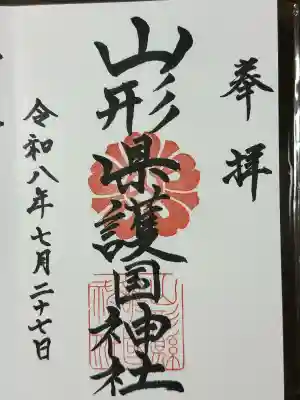 奉拝
山形県護国神社
令和八年七月二十七日